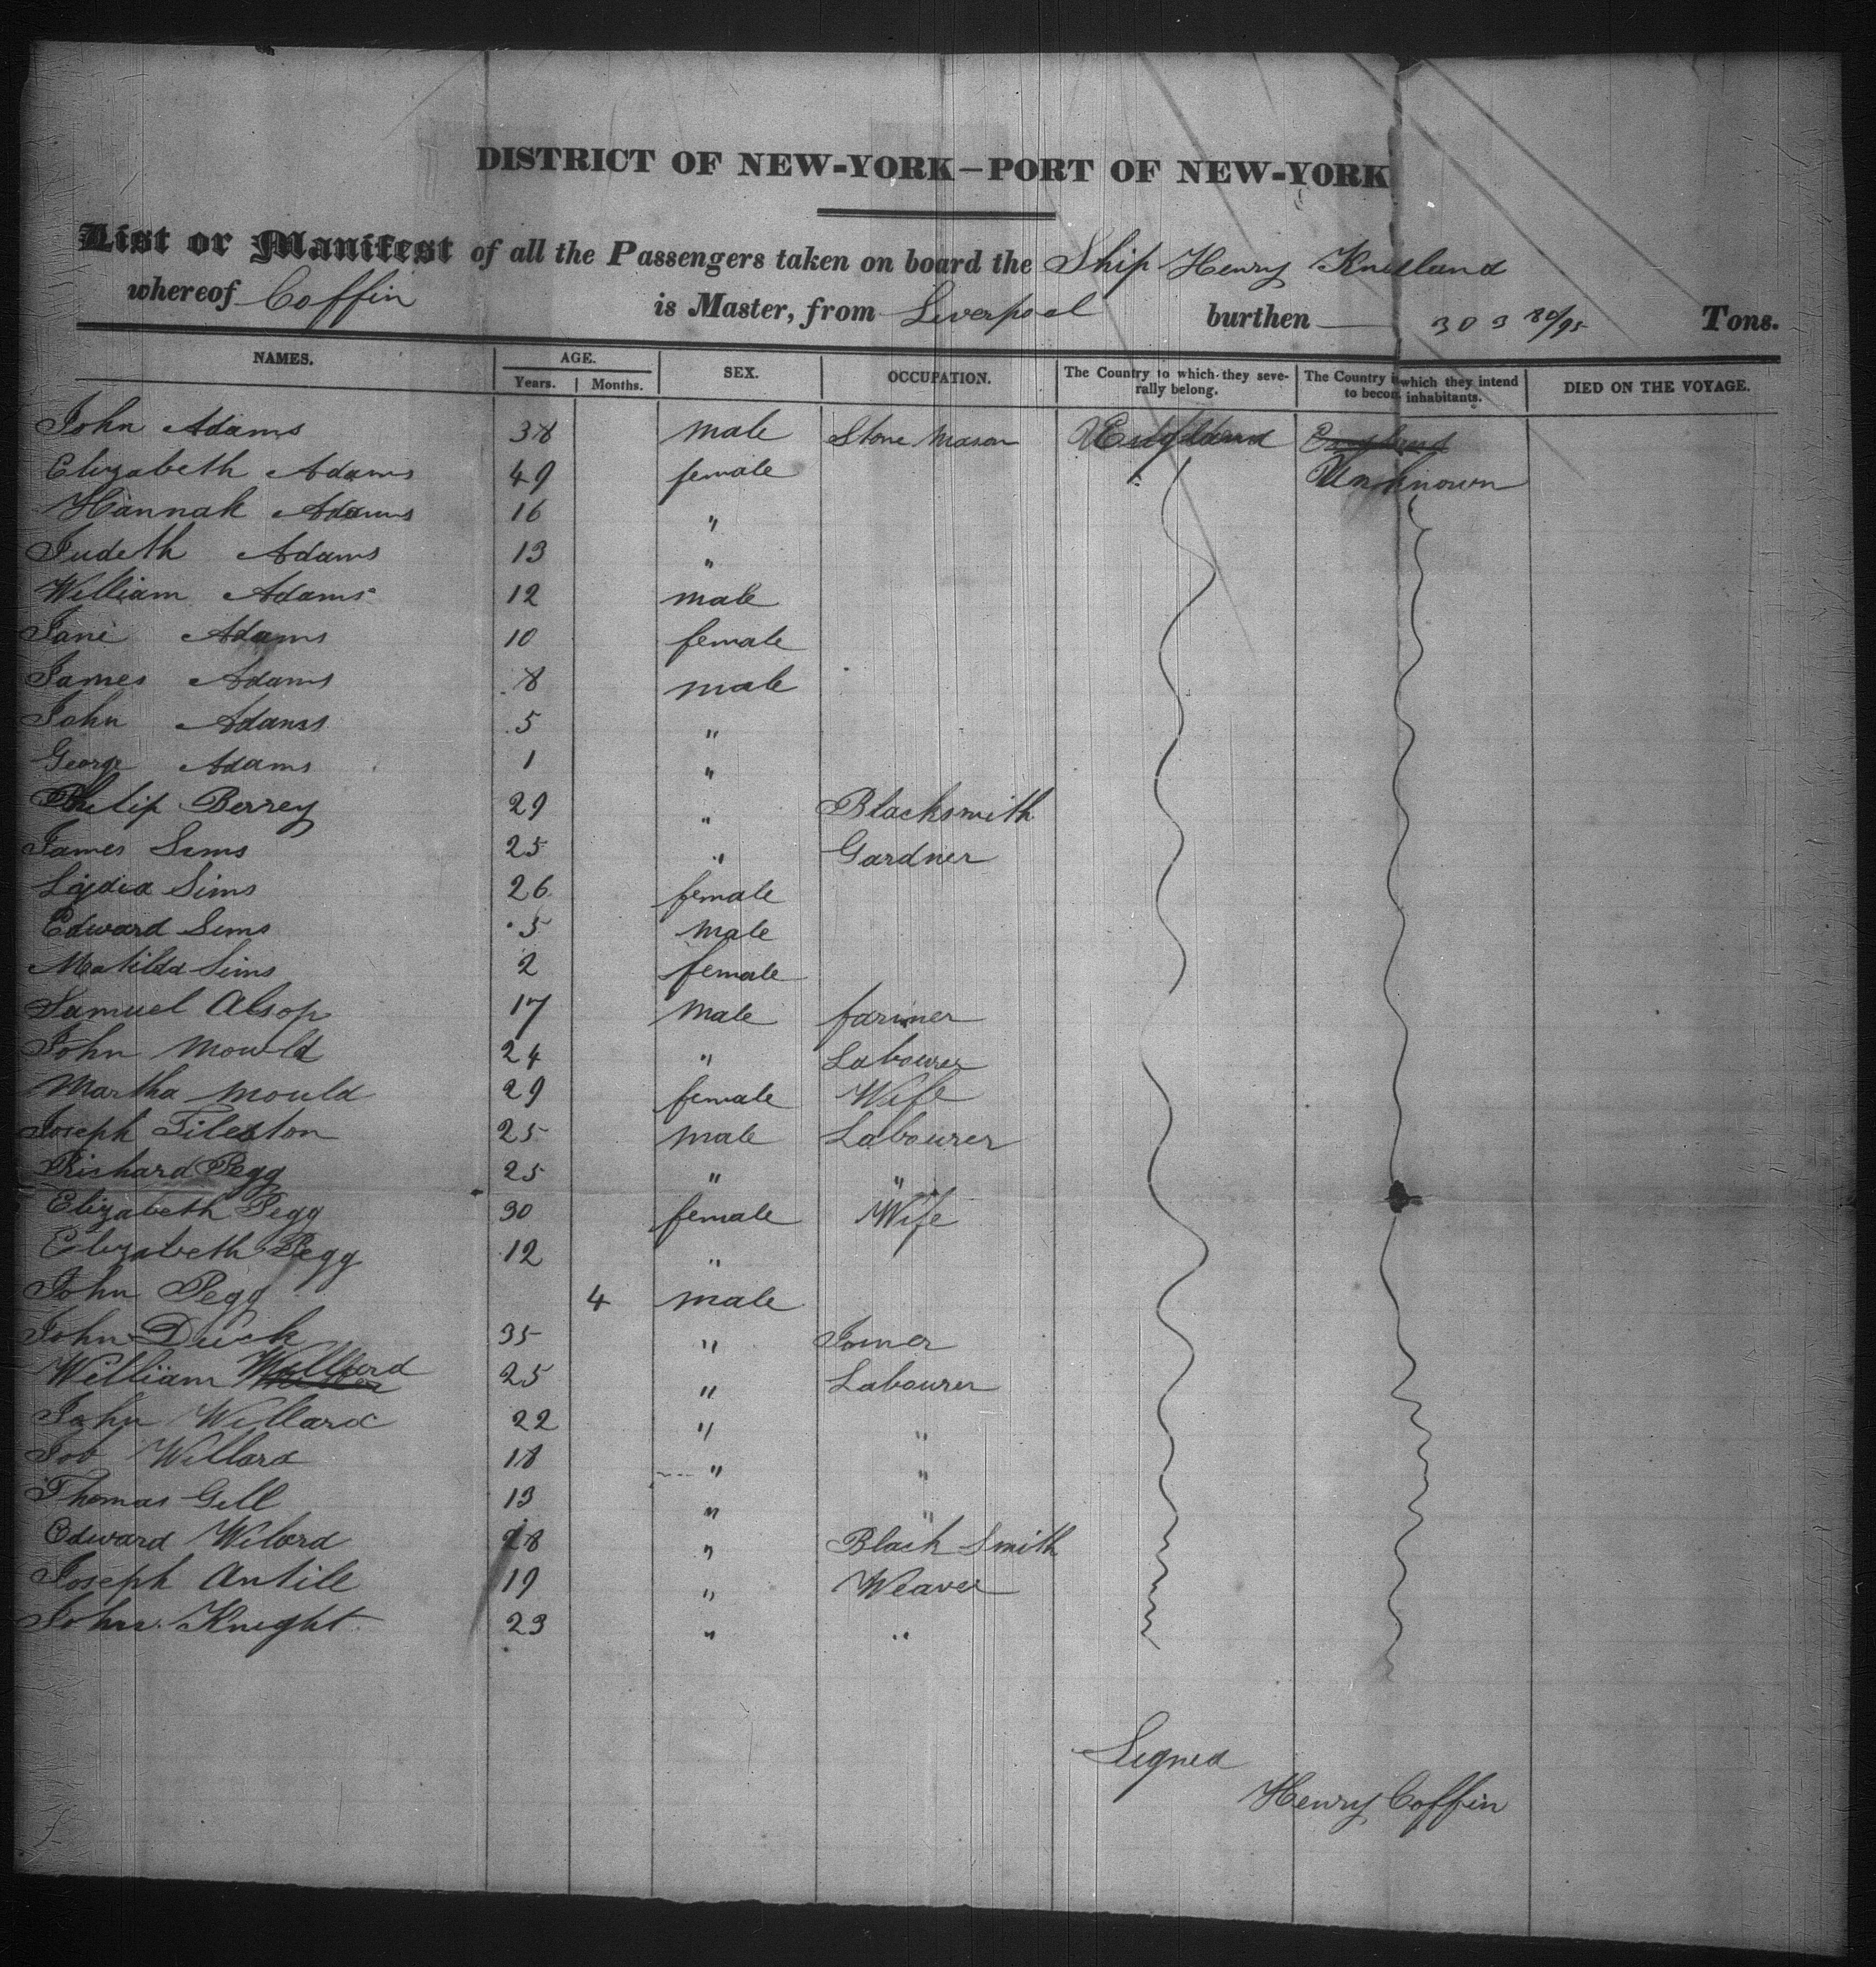 DISTRICT OF NEW-YORK—PORT OF NEW-YORK
List or Manifest of all the Passengers taken on board the Ship Henry Kneeland
whereof Coffin is Master, from Liverpool burthen 303 80/95 Tons.
NAMES. AGE. Years. Months. SEX. OCCUPATION. The Country to which they severally belong. The Country in which they intend to become inhabitants. DIED ON THE VOYAGE.
John Adams 38 male Stone Mason England England
Elizabeth Adams 49 female Unknown
Hannah Adams 16 "
Judeth Adams 13 "
William Adams 12 male
Jane Adams 10 female
James Adams 8 male
John Adams 5 "
George Adams 1 "
Philip Berrey 29 " Blacksmith
James Sims 25 " Gardner
Lydia Sims 26 female
Edward Sims 5 male
Matilda Sims 2 female
Samuel Alsop 17 male farmer
John Mould 24 " Labourer
Martha Mould 29 female Wife
Joseph Tileston 25 male Labourer
Richard Pegg 25 " "
Elizabeth Pegg 30 female Wife
Elizabeth Pegg 12 "
John Pegg 4 male
John Duck 35 " Joiner
William Willard 25 " Labourer
John Willard 22 " "
Job Willard 18 " "
Thomas Gill 13 " "
Edward Wilard 28 " Black Smith
Joseph Antill 19 " Weaver
John Knight 23 " "
Signed
Henry Coffin